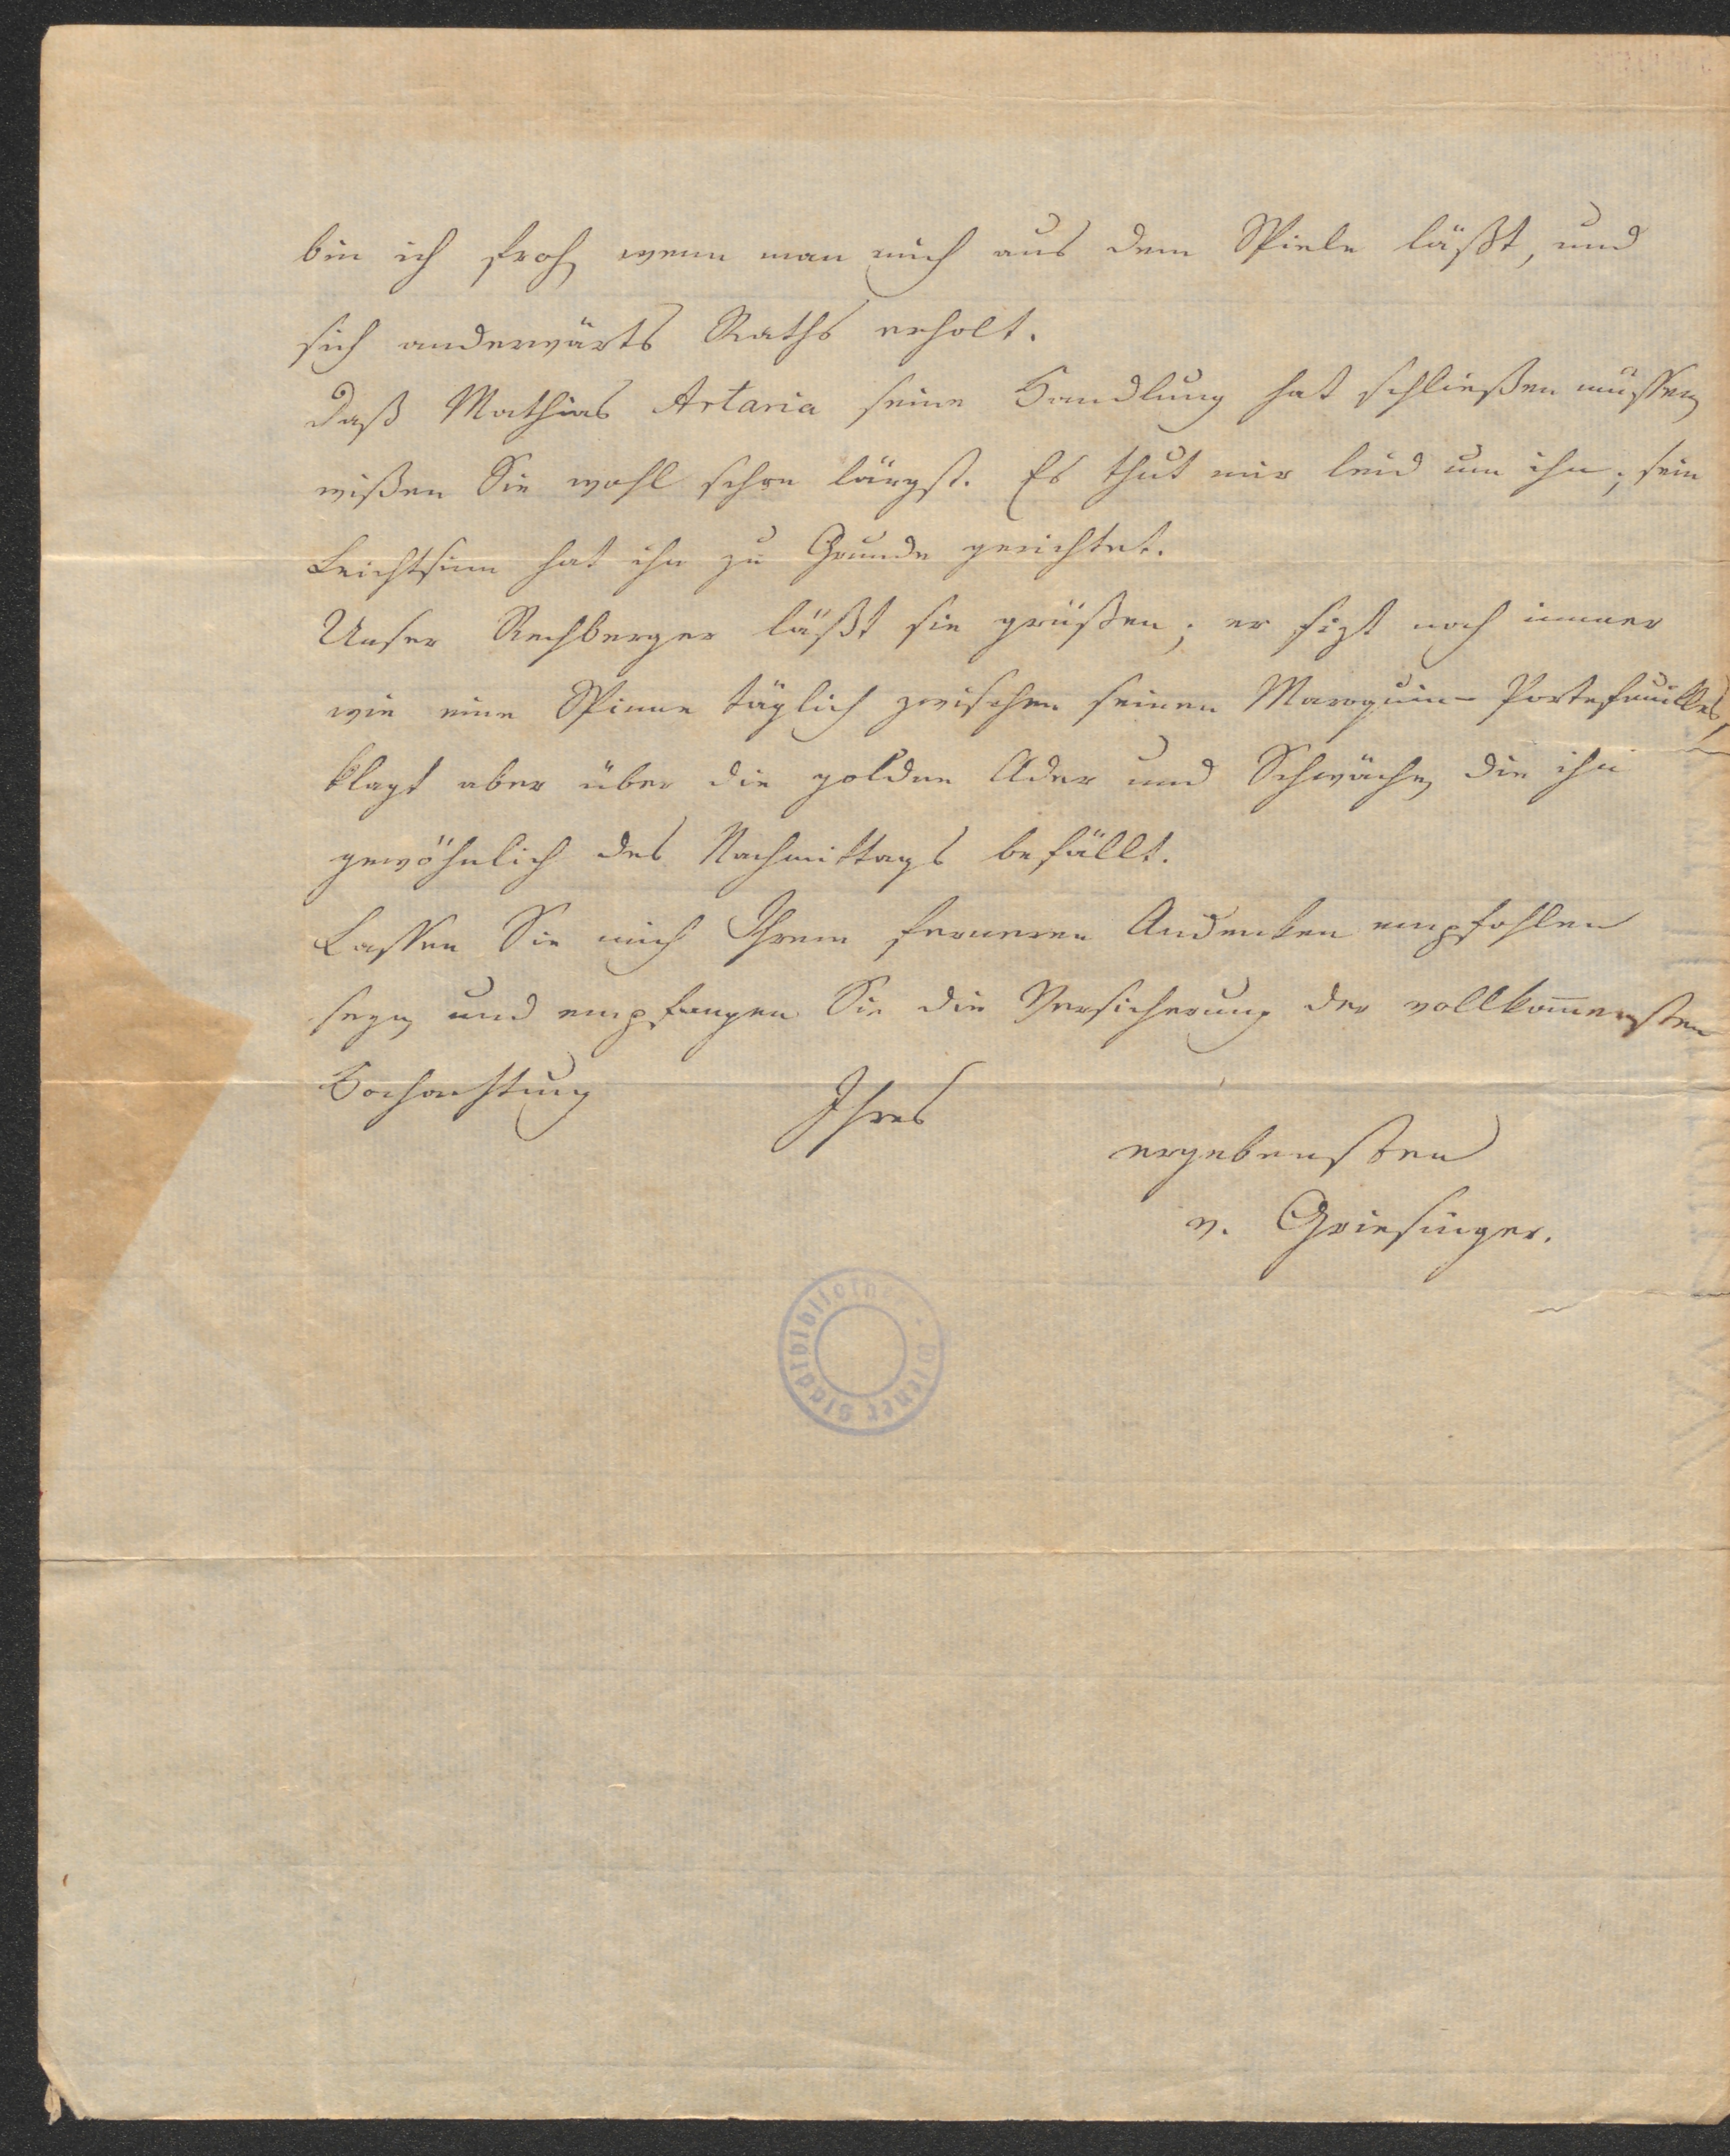 bin ich froh, wenn man mich aus dem Spiele läßt, und
sich anderwärts Raths erholt.
Daß Mathias Artaria seine Handlung hat schließen müssen,
wißen Sie wohl schon längst. Es thut mir leid um ihn; sein
Leichtsinn hat ihn zu Grunde gerichtet.
Unser Rechberger läßt sie grüßen; er sizt noch immer
wie eine Spinne täglich zwischen seinen Maroquin-Portefeuilles,
klagt aber über die goldne Ader und Schwäche, die ihn
gewöhnlich des Nachmittags befällt.
Lassen Sie mich Ihrem ferneren Andenken empfohlen
seyn, und empfangen Sie die Versicherung der vollkom̅ensten
Hochachtung Ihres
ergebensten
v. Griesinger.
Wiener Stadtbibliothek